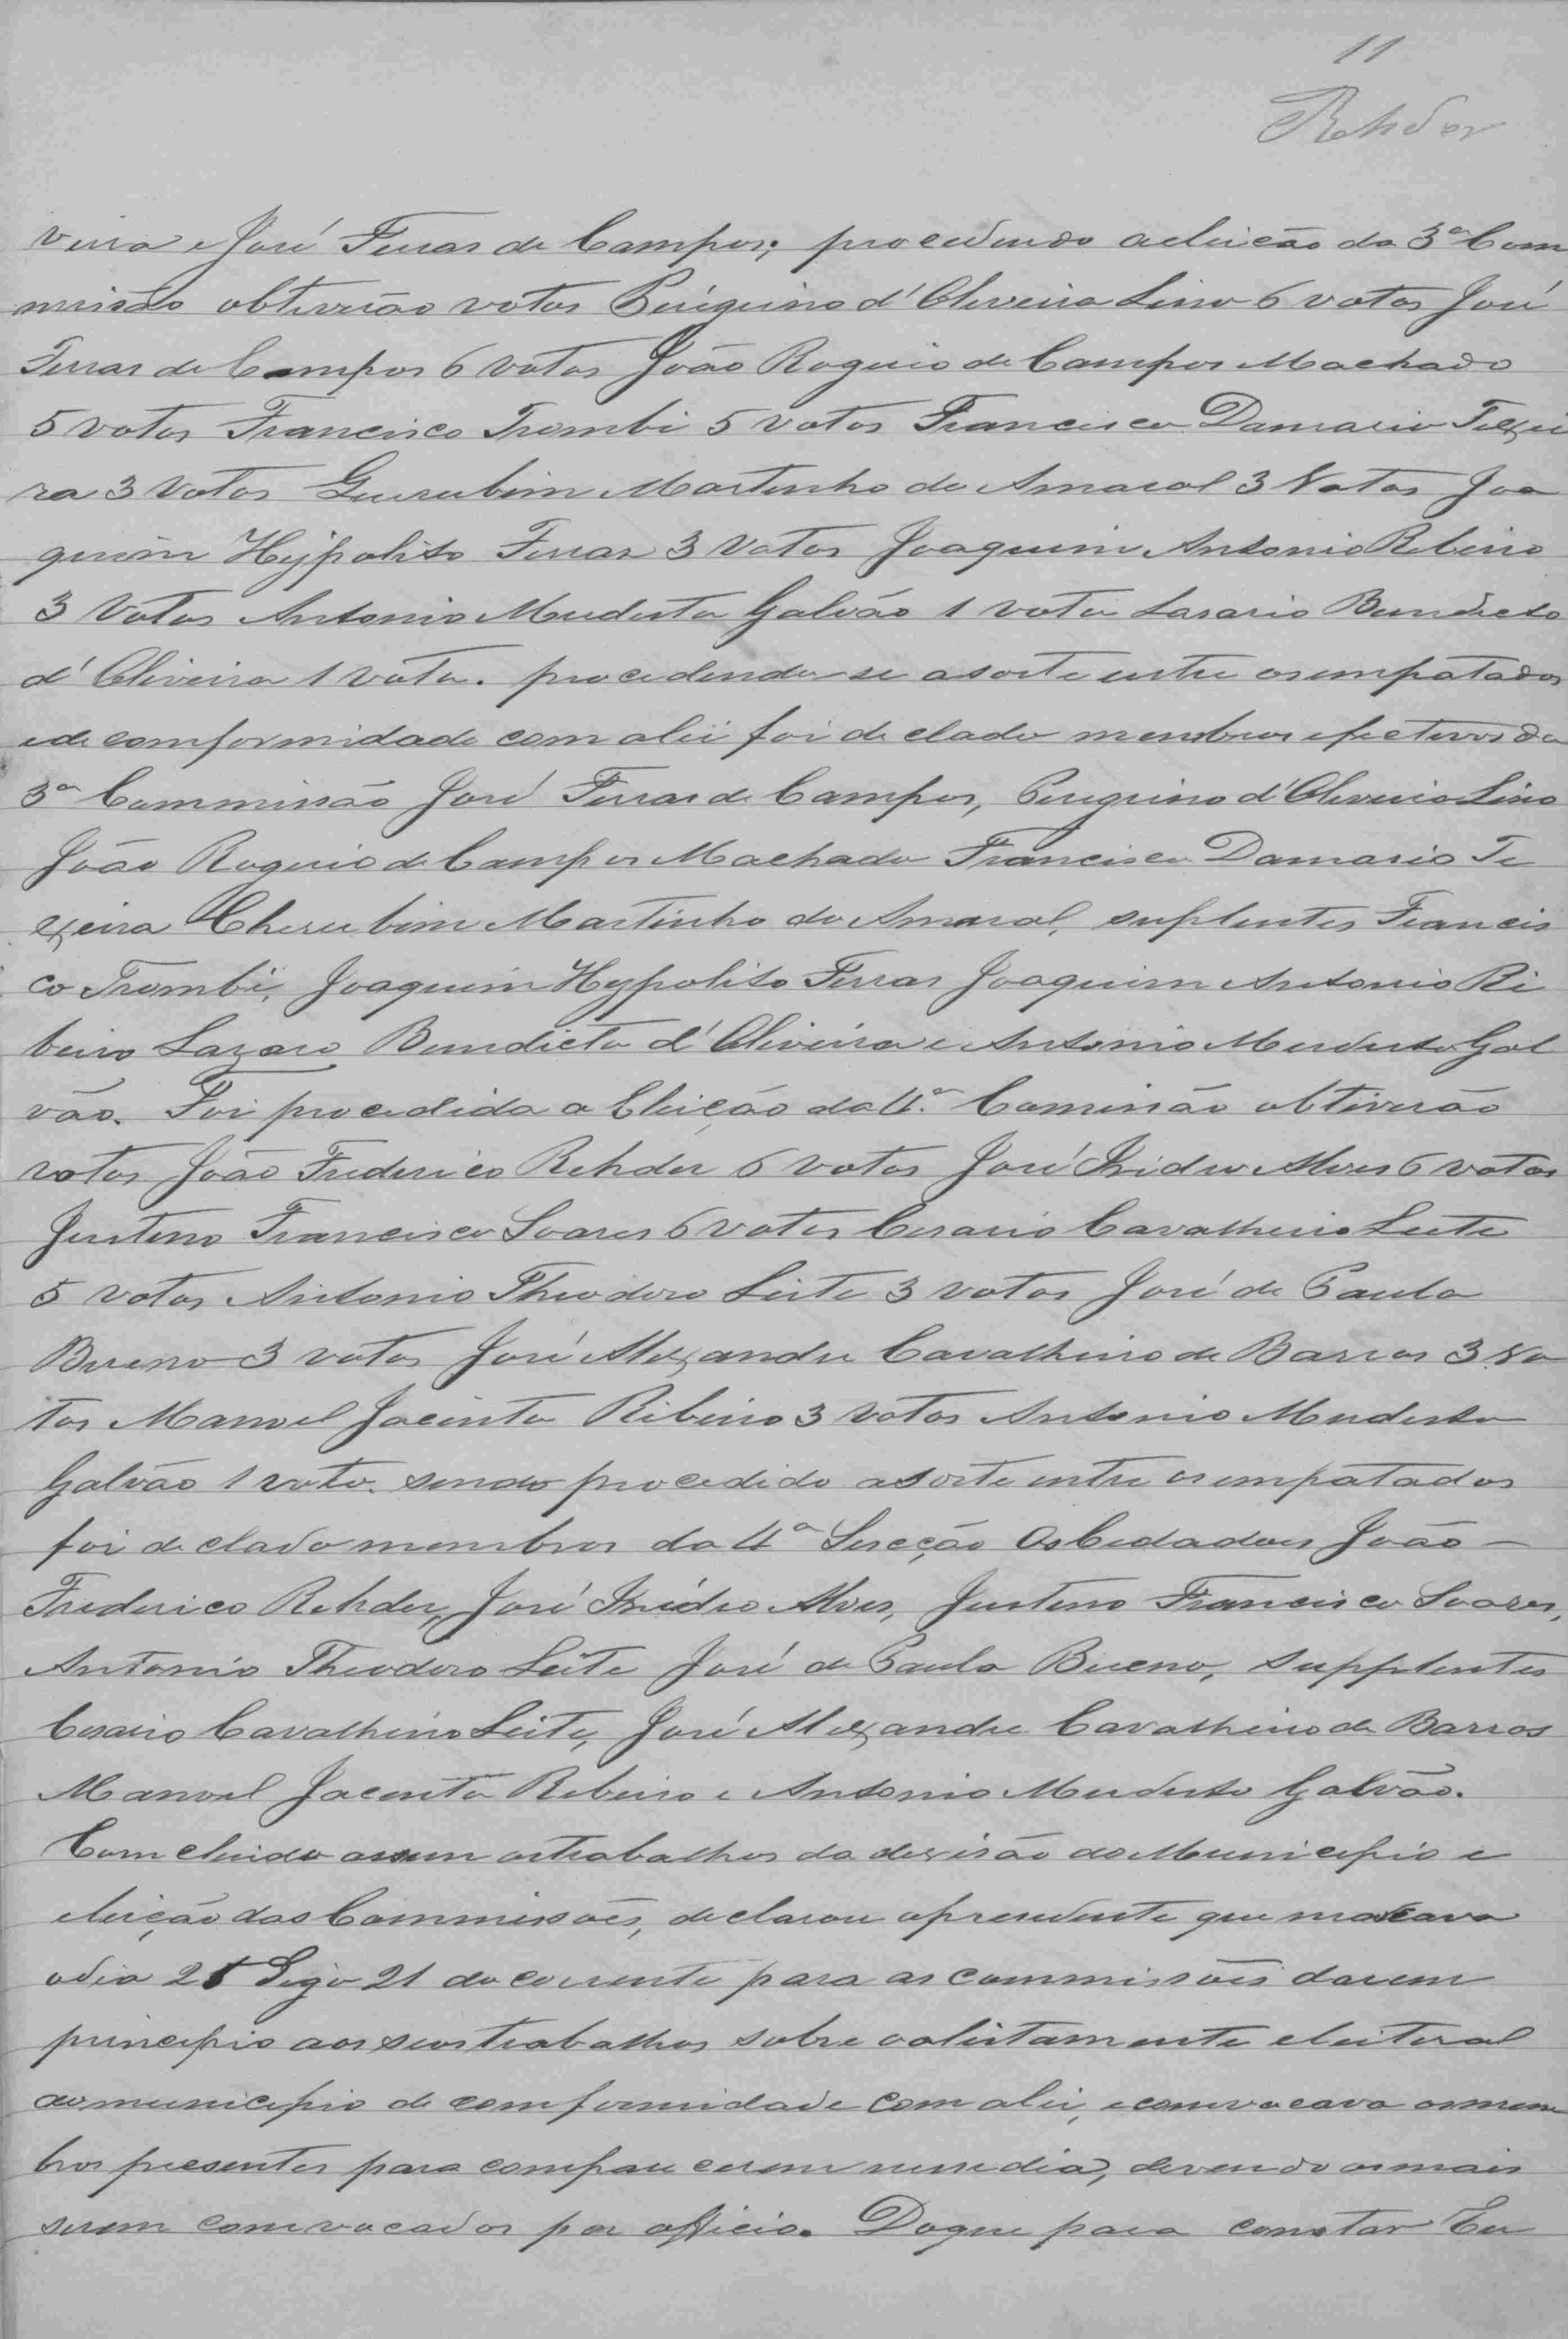 11
Rehder
veira e José Ferras de Campos; procedendo a eleicão da 3ª Com
missão obtiverão votos Peregrino d'Oliveira Lino 6 votos José
Ferras de Campos 6 votos João Rogerio de Campos Machado
5 votos Francisco Trombi 5 votos Francisco Damasio Teixei
ra 3 votos Gerubim Martinho do Amaral 3 Votos Joa
quim Hypolito Ferras 3 votos Joaquim Antonio Ribeiro
3 Votos Antonio Mudesto Galvão 1 voto Lasario Bendicto
d'Oliveira 1 voto. procedendo-se a sorte entre os empatados
e de comformidade com a lei foi declado membros efectivos da
3ª Commissão José Ferras de Campos, Peregrino d'Oliveira Lino
João Rogerio de Campos Machado Francisco Damasio Te
xeira Cherubim Martinho do Amaral, suplentes Francis
co Trombi, Joaquim Hypolito Ferras Joaquim Antonio Ri
beiro Lazaro Benedicto d'Oliveira e Antonio Mudesto Gal
vão. Foi procedida a Eleição da 4ª Comissão obtiverão
votos João Frederico Rehder 6 votos José Isidro Alves 6 votos
Justino Francisco Soares 6 votos Cesario Cavalheiro Leite
5 votos Antonio Theodoro Leite 3 votos José de Paula
Bueno 3 votos José Alexandre Cavalheiro de Barros 3 Vo
tos Manoel Jacinto Ribeiro 3 votos Antonio Mudesto
Galvão 1 voto. sendo procedido a sorte entre os empatados
foi declado membros da 4ª Secção Os Cidadaos João
Frederico Rehder, José Isidro Alves, Justino Francisco Soares,
Antonio Theodoro Leite José de Paula Bueno, supplentes
Cesario Cavalheiro Leite, José Alexandre Cavalheiro de Barros
Manoel Jacinto Ribeiro e Antonio Mudesto Galvão.
Comcluido assim os trabalhos da devisão do Municipio e
eleição das Commissões, declarou o presidente que marcava
o dia 25 Digo 21 do corrente para as commissões darem
principio aos seus trabalhos sobre o alistamente eleitoral
do municipio de comformidade com a lei, e comvocava os mem
bros presentes para comparecerem nesse dia, devendo os mais
serem comvocados por officio. Do que para constar Eu